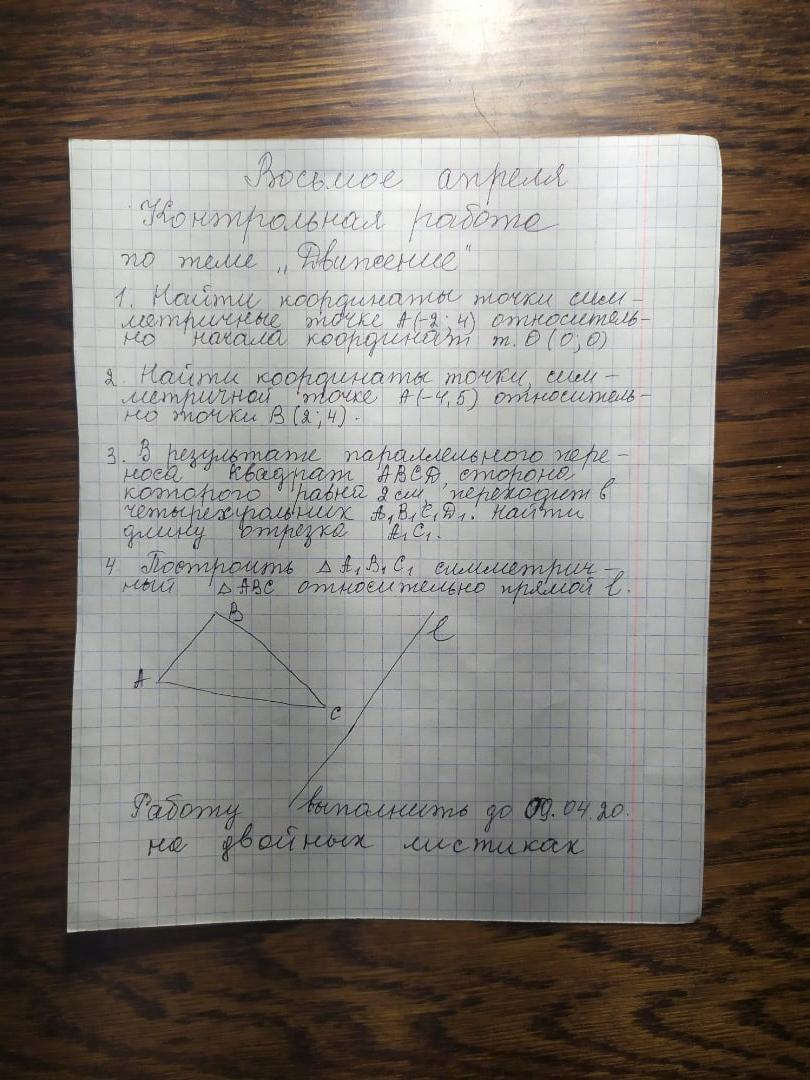 Восьмое апреля
Контрольная работа
по теме „Движение"
1. Найти координаты точки сим-
метричные точке A(-2; 4) относитель-
но начала координат т. O (0; 0)
2. Найти координаты точки, сим-
метричной точке A(-4,5) относитель-
но точки B (2; 4).
3. В результате параллельного пере-
носа квадрат ABCD, сторона
которого равна 2 см переходит в
четырехугольник A₁B₁C₁D₁. Найти
длину отрезка A₁C₁.
4. Построить △ A₁B₁C₁ симметрич-
ный △ ABC относительно прямой l.
B
l
A
C
Работу выполнить до 09.04.20.
на двойных листиках